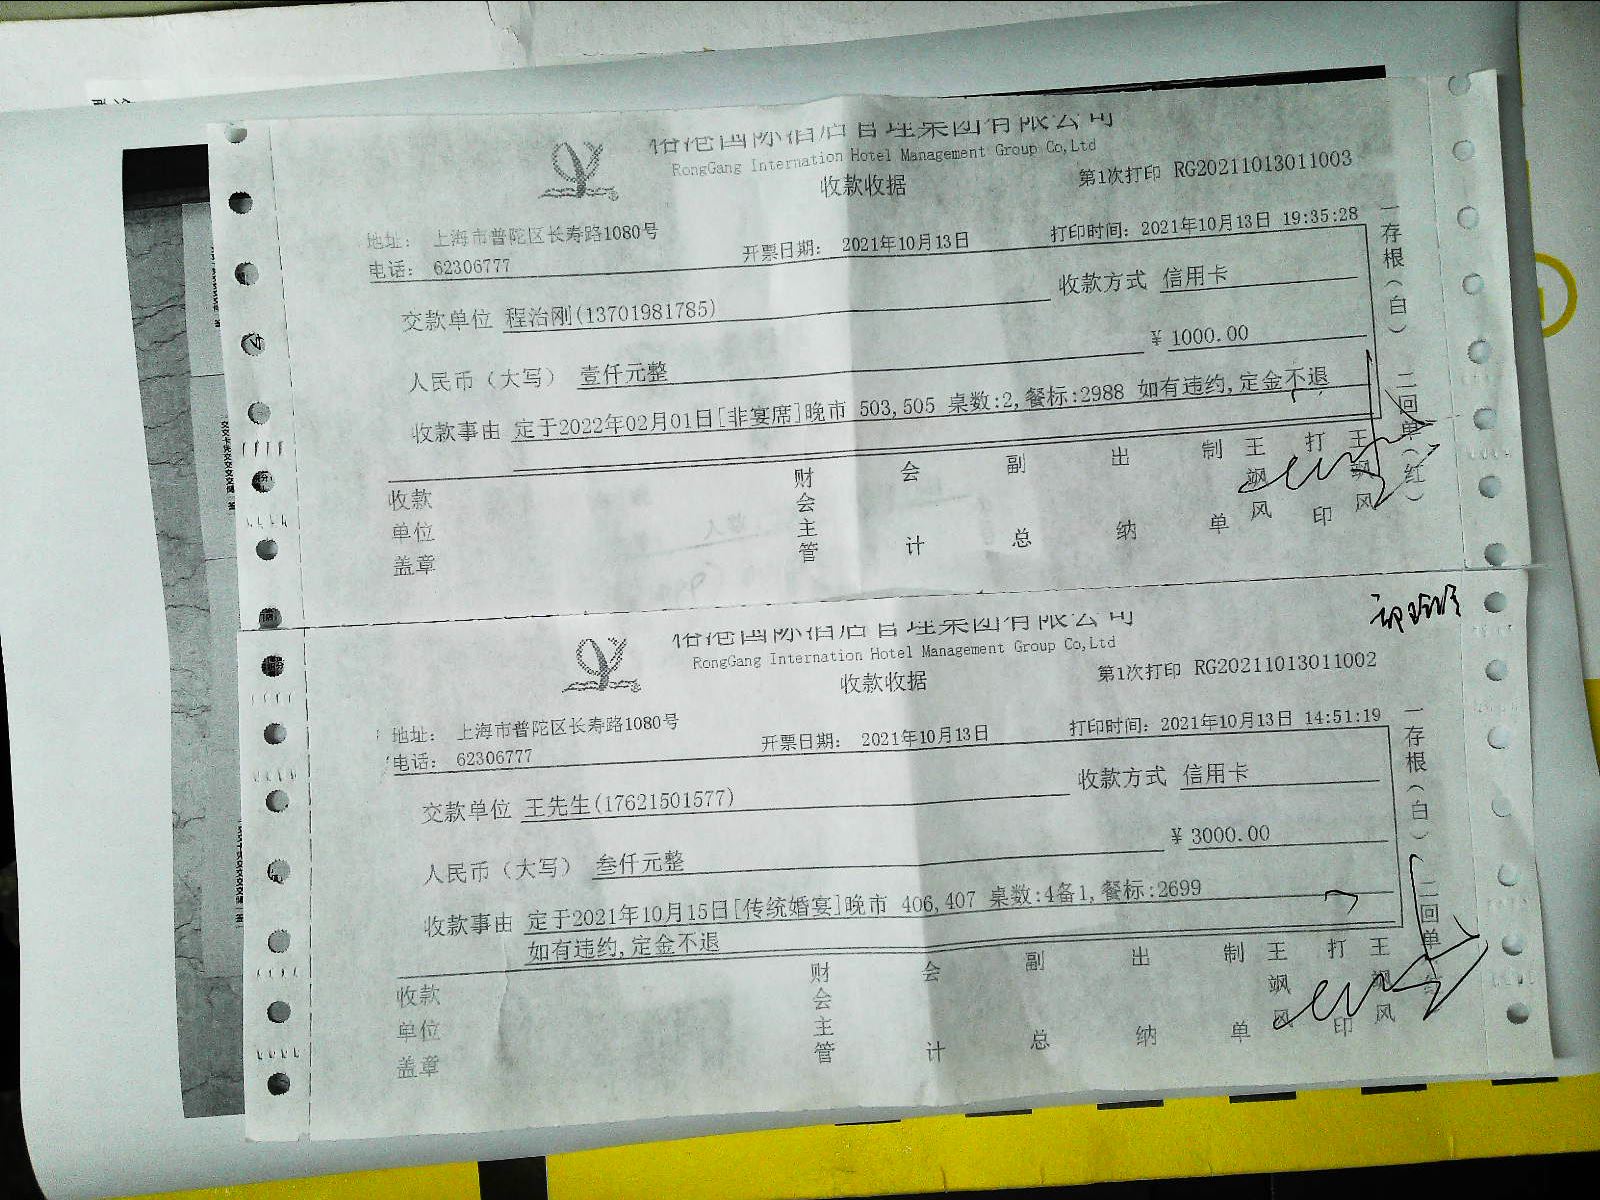 裕港国际酒店管理集团有限公司
RongGang Internation Hotel Management Group Co,Ltd
收款收据
第1次打印 RG20211013011003
地址: 上海市普陀区长寿路1080号
电话: 62306777
开票日期: 2021年10月13日
打印时间: 2021年10月13日 19:35:28
交款单位 程治刚(13701981785)
收款方式 信用卡
人民币（大写） 壹仟元整
¥ 1000.00
收款事由 定于2022年02月01日[非宴席]晚市 503,505 桌数:2,餐标:2988 如有违约,定金不退
收款单位盖章
财会主管
会计
副总
出纳
制单
王飒风
打印
王飒风
一存根(白)
二回单(红)
裕港国际酒店管理集团有限公司
RongGang Internation Hotel Management Group Co,Ltd
收款收据
第1次打印 RG20211013011002
地址: 上海市普陀区长寿路1080号
电话: 62306777
开票日期: 2021年10月13日
打印时间: 2021年10月13日 14:51:19
交款单位 王先生(17621501577)
收款方式 信用卡
人民币（大写） 叁仟元整
¥ 3000.00
收款事由 定于2021年10月15日[传统婚宴]晚市 406,407 桌数:4备1,餐标:2699
如有违约,定金不退
收款单位盖章
财会主管
会计
副总
出纳
制单
王飒风
打印
王飒风
一存根(白)
二回单(红